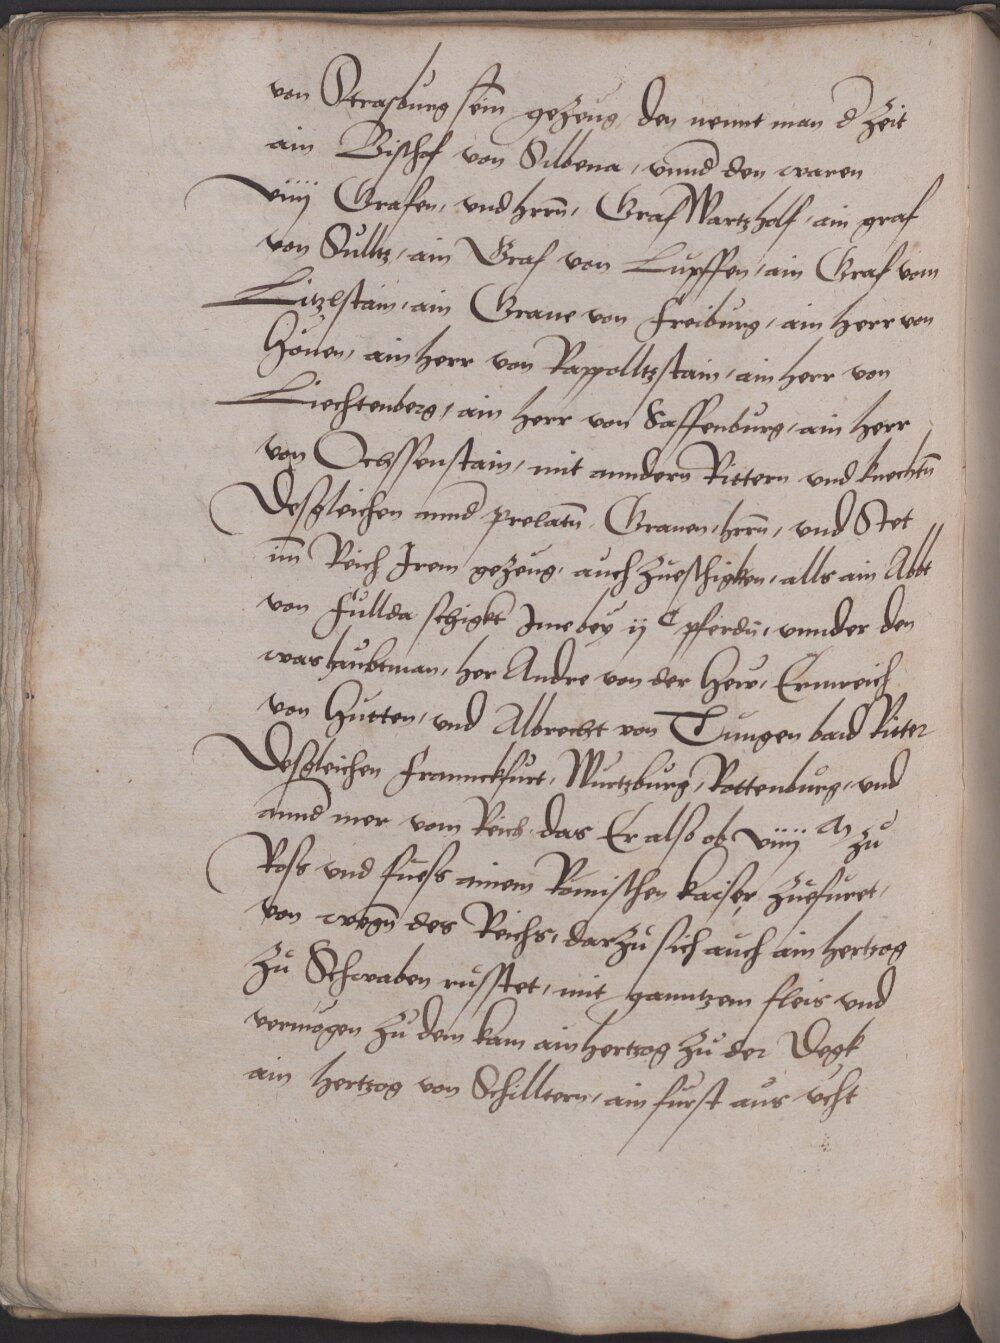 von Strasburg sein gezeug, den nennt man d Zeit
ain Bischof von Silbena, vnnd den waren
viiij Grafen, vnd hrrn, Graf Wartzholf, ain graf
von Sultz, ain Graf von Lupffen, ain Graf vom
Litzlstain, ain Graue von Freiburg, ain herr von
Höuen, ain herr von Rappolltzstain, ain herr von
Liechtenberg, ain herr von Saffenburg, ain herr
von Ochssenstain, mit anndern Rittern vnd knechtn
Desgleichen annd prelatn, Grauen, hrrn, vnd Stet
im Reich Irem gezeug, auch zueschigkten, alls ain Abbt
von Fullda schigkt Ime bey ij C pferdn, vnnder den
was haubtman, her Andre von der Hew, Ermreich
von Hutten, vnd Albrecht von Tungen baid Ritter
Desgleichen Franнckfurt, Wurtzburg, Rottenburg, vnd
annd mer vom Reich, das Er also ob viiij M zu
Ross vnd fuess ainem Römischen kaiser zuefuret,
von wegn des Reichs, darzu sich auch ain hertzog
zu Schwaben russtet, mit ganntzem fleis vnd
vermögen zu dem kam ain hertzog zu der Degk
ain hertzog von Schilltern, ain furst aus vcht